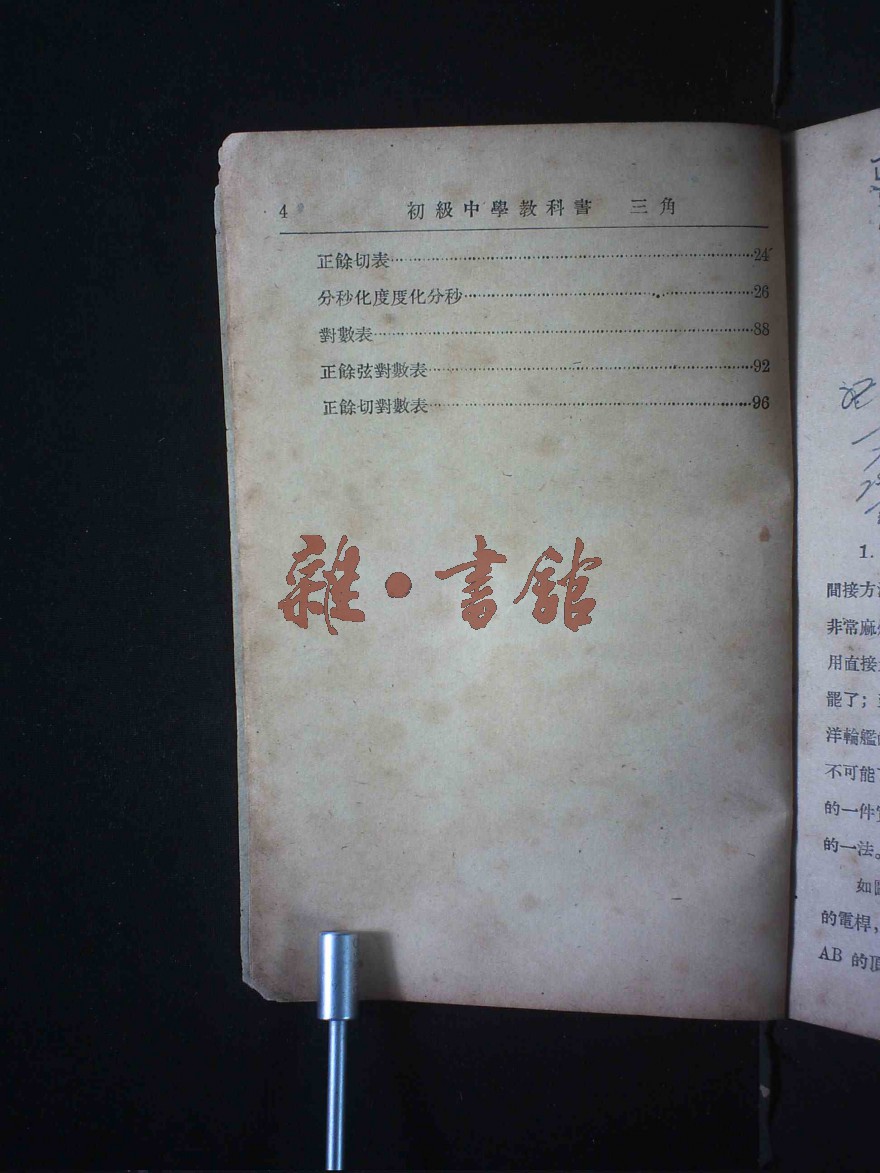 4 初級中學教科書 三角
正餘切表……24
分秒化度度化分秒……26
對數表……88
正餘弦對數表……92
正餘切對數表……96
雜·書館
1.
間接方法
非常麻
用直接
罷了；
洋輪艦
不可能
的一件
的一法。
如圖
的電桿，
AB 的頂